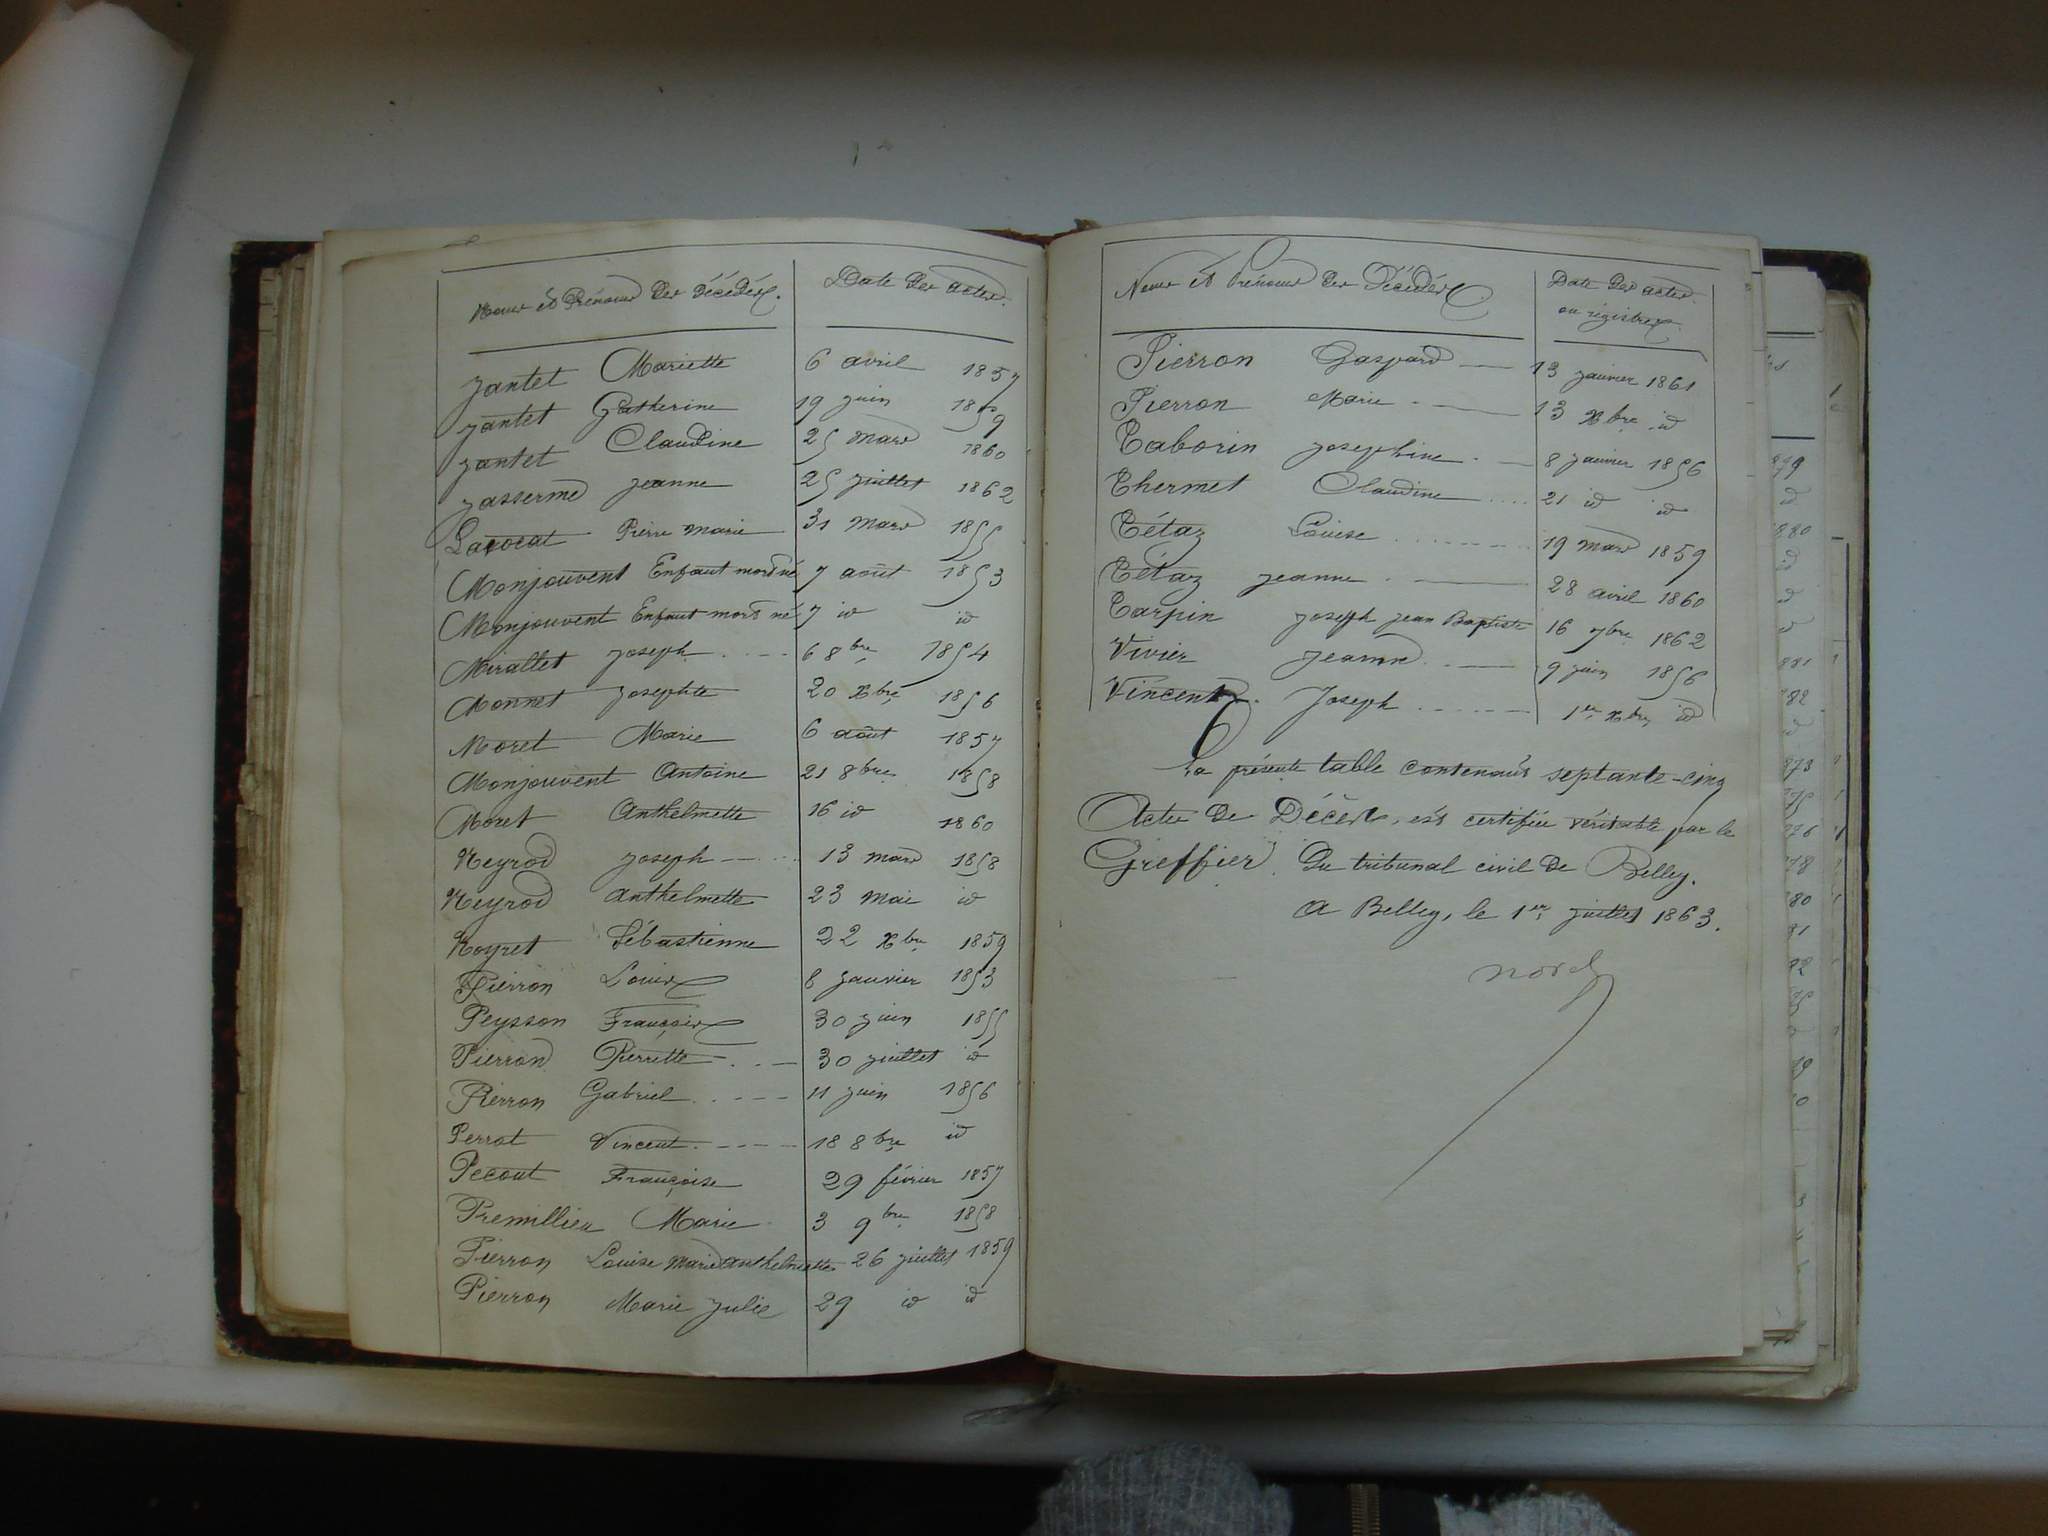 Noms et Prénoms des Décédés. Date des actes.
Jantet Mariette 6 avril 1857
Jantet Catherine 19 juin 1859
Jantet Claudine 25 mars 1860
Jasserme Jeanne 25 juillet 1862
Lavocat Pierre Marie 31 mars 1855
Monjouvent Enfant mort né 7 août 1853
Monjouvent Enfant mort né 7 id id
Mirallet Joseph 6 8bre 1854
Monnet Josephte 20 Xbre 1856
Moret Marie 6 août 1857
Monjouvent Antoine 21 8bre 1858
Moret Anthelmette 16 id 1860
Neyrod Joseph 13 mars 1858
Neyrod Anthelmette 23 mai id
Noyret Sébastienne 22 Xbre 1859
Pierron Louis 8 janvier 1853
Peysson François 30 juin 1855
Pierron Pierrette 30 juillet id
Pierron Gabriel 11 juin 1856
Perrot Vincent 18 8bre id
Pecout Françoise 29 février 1857
Premillieu Marie 3 9bre 1858
Pierron Louise Marie Anthelmette 26 juillet 1859
Pierron Marie Julie 29 id id
Noms et Prénoms des Décédés. Date des actes.
ou registres.
Pierron Gaspard 13 janvier 1861
Pierron Marie 13 Xbre id
Taborin Josephine 8 janvier 1856
Thermet Claudine 21 id id
Tétaz Louise 19 mars 1859
Tétaz Jeanne 28 avril 1860
Tarpin Joseph Jean Baptiste 16 7bre 1862
Vivier Jeanne 9 juin 1856
Vincent Joseph 1er Xbre id
La présente table contenant septante-cinq
Actes de Décès, est certifiée véritable par le
Greffier du tribunal civil de Belley.
A Belley, le 1er juillet 1863.